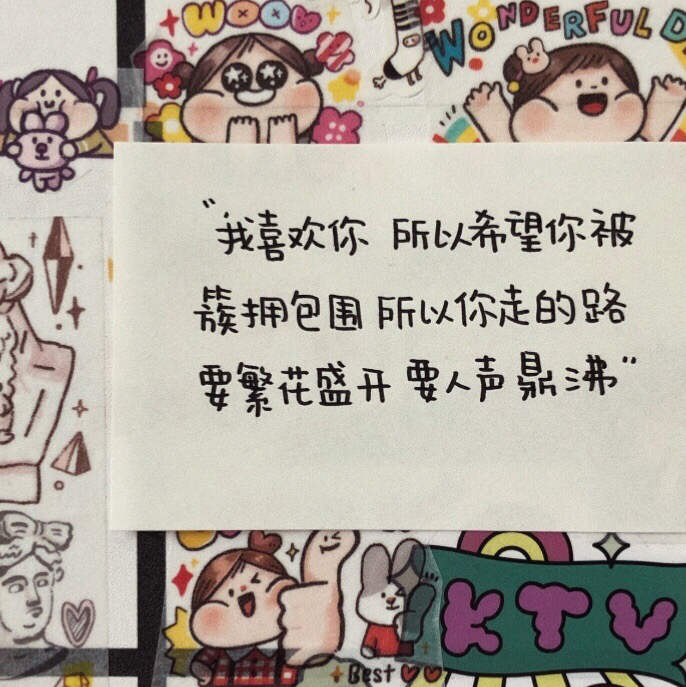 WOOW
WONDERFUL D
“我喜欢你 所以希望你被
簇拥包围 所以你走的路
要繁花盛开 要人声鼎沸”
KTV
Best